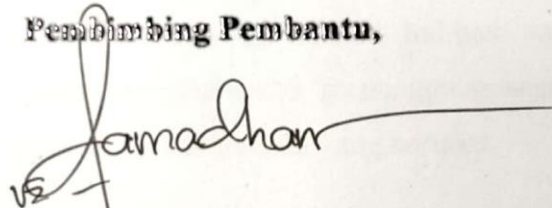 Pembimbing Pembantu,
Ramadhan